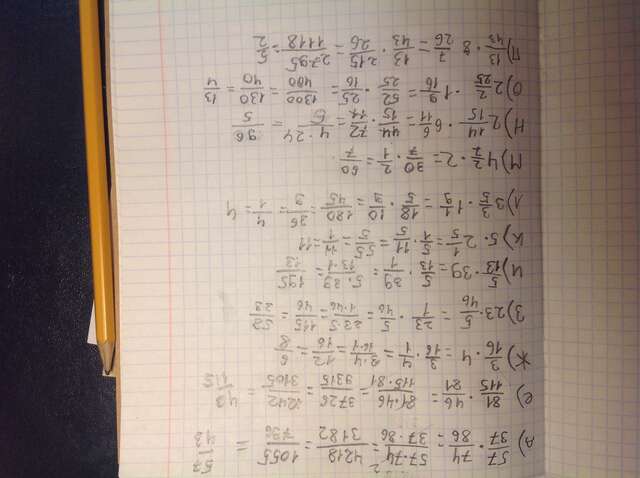 д) 57/37 · 74/86 = 57·74/37·86 = 4218/3182 = 1055/796 = 57/43
е) 81/115 · 46/81 = 81·46/115·81 = 3726/9315 = 1242/3105 =
Ж) 3/16 · 4 = 3/16 · 4/1 = 3·4/16·1 = 12/16 = 6/8
З) 23 · 5/46 = 23/1 · 5/46 = 23·5/1·46 = 115/46 = 58/23
И) 5/13 · 39 = 5/13 · 39/1 = 5·39/13·1 = 195/13
К) 5 · 2 1/5 = 5/1 · 11/5 = 55/5 = 11/1 = 11
Л) 3 3/5 · 1 1/9 = 18/5 · 10/9 = 180/45 = 36/9 = 4/1 = 4
М) 4 2/7 · 2 = 30/7 · 2/1 = 60/7
Н) 2 14/15 · 6 6/11 = 44/15 · 72/11 = 4·24/5 = 96/5
О) 2 2/25 · 1 9/16 = 52/25 · 25/16 = 1300/400 = 130/40 = 13/4
П) 13/43 · 8 7/26 = 13/43 · 215/26 = 2795/1118 = 5/2